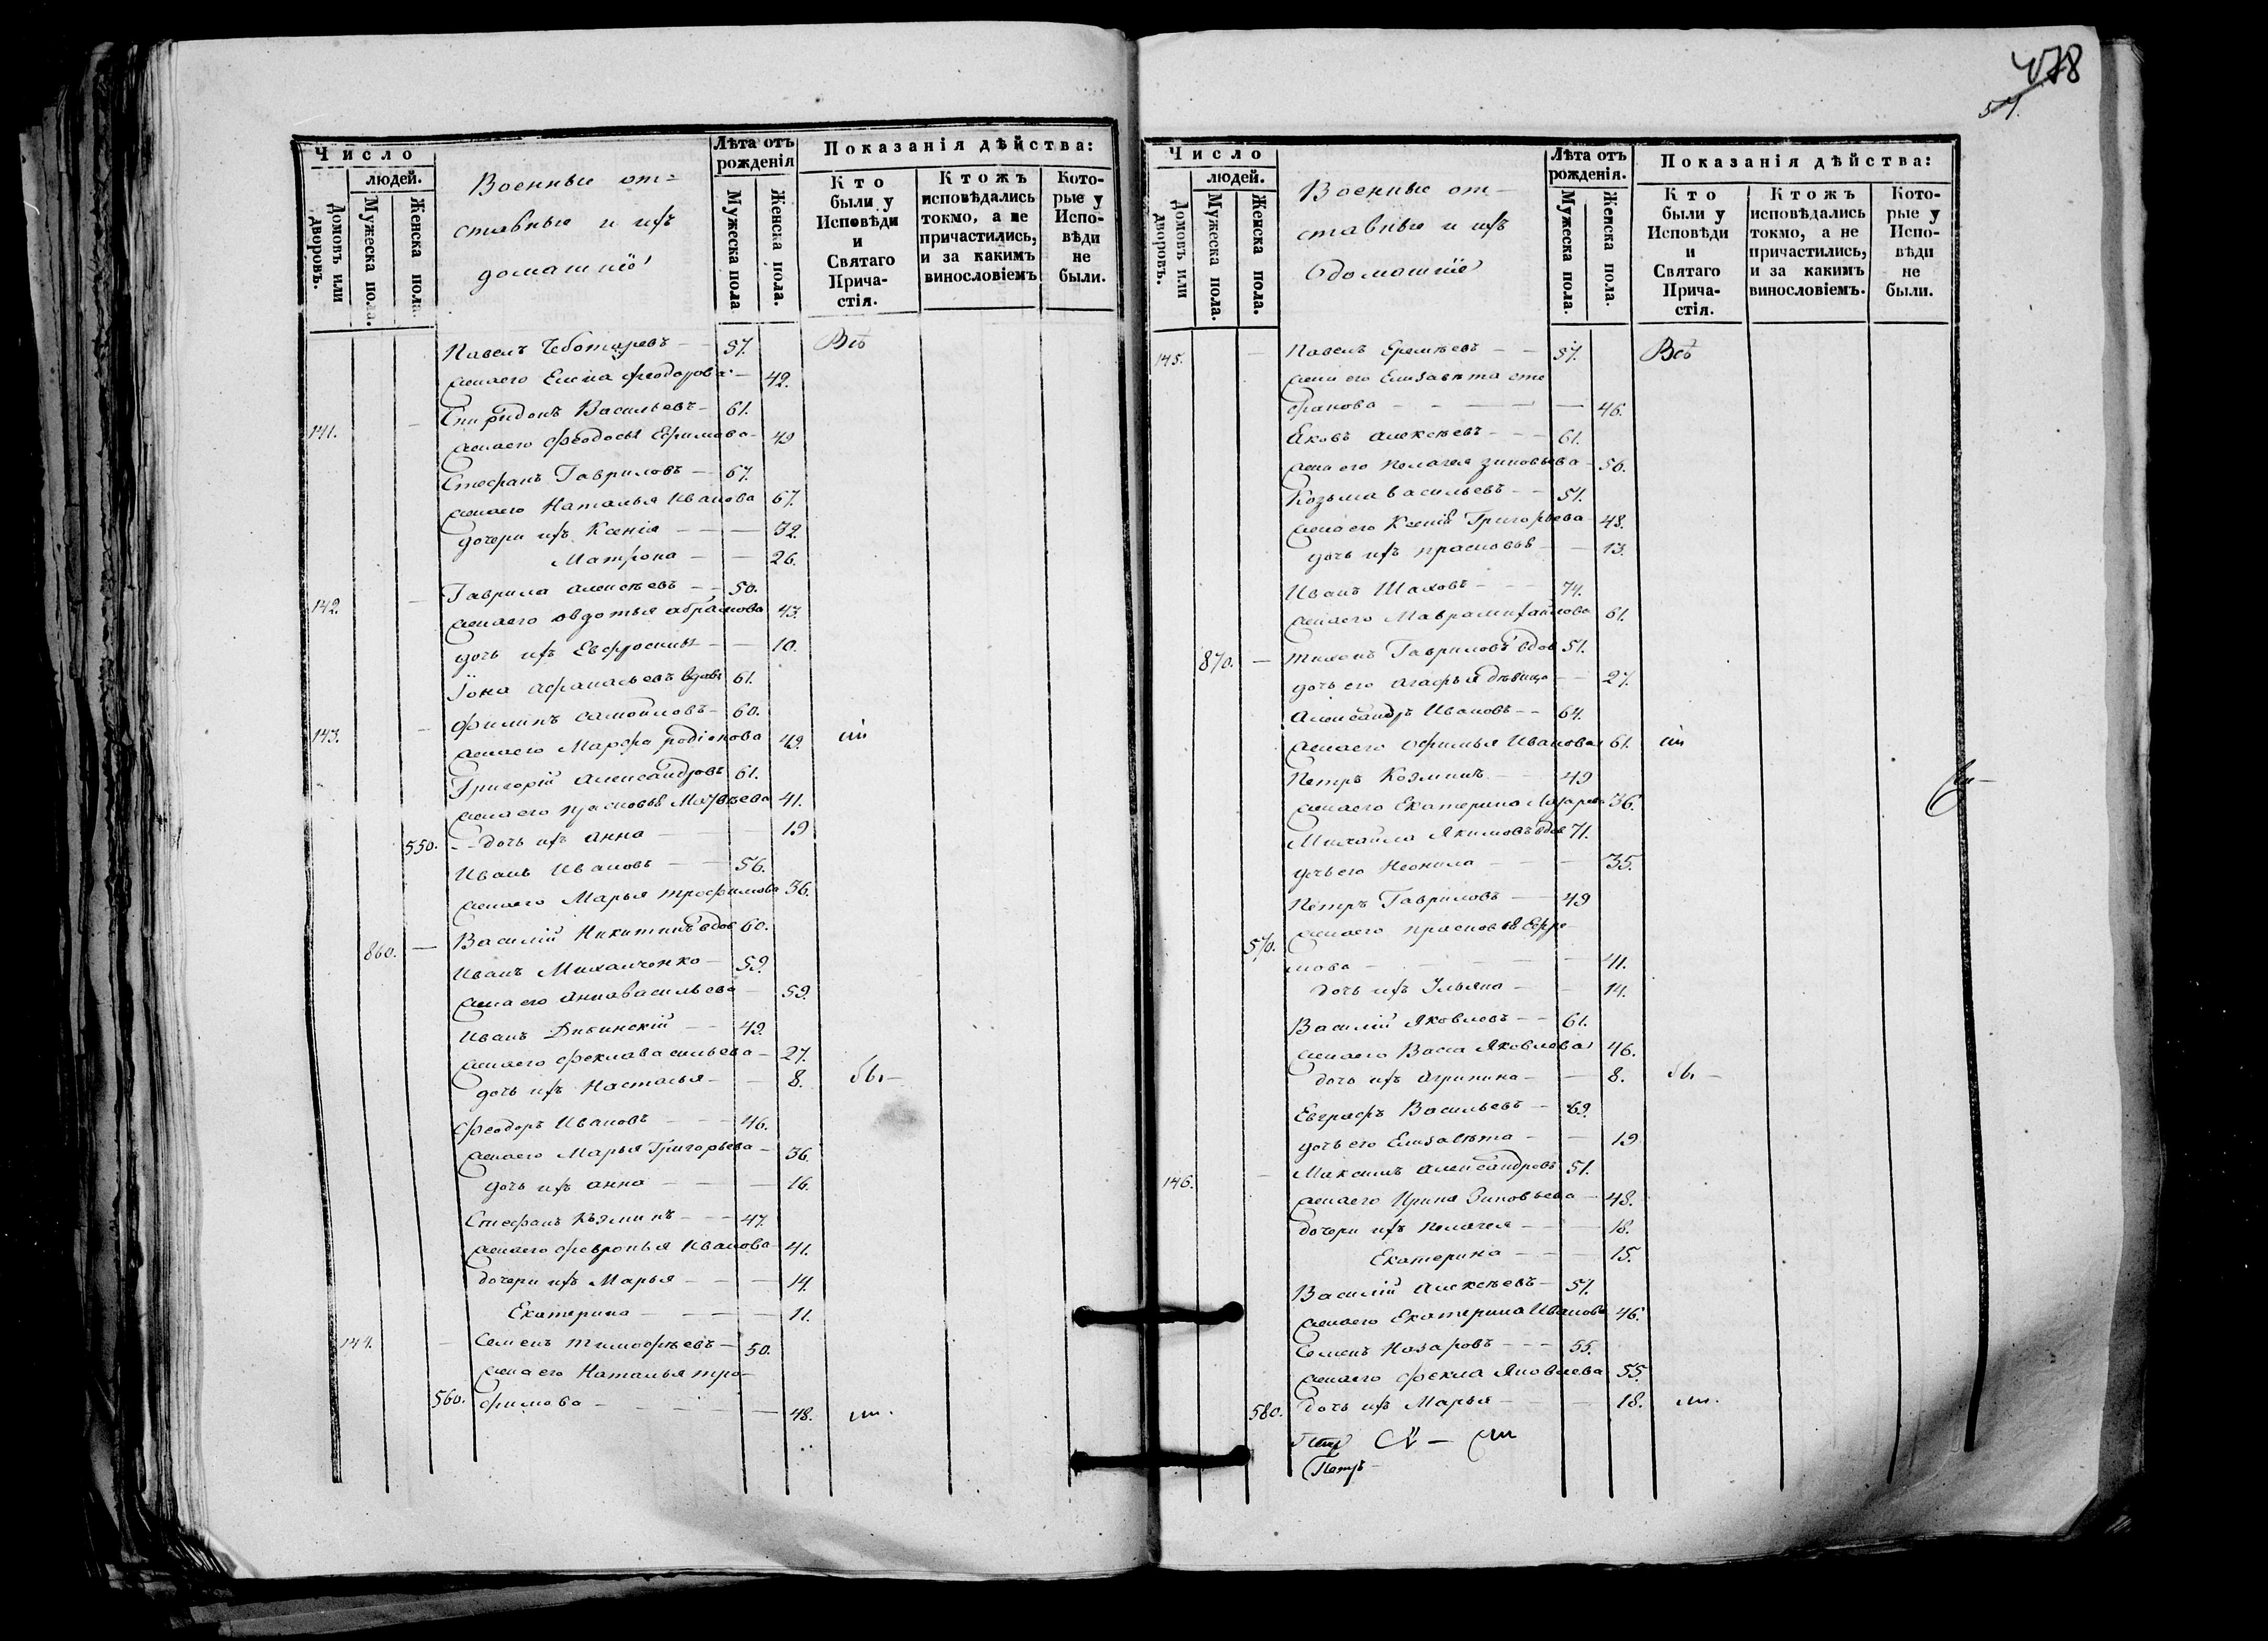 478
57.
Число
людей.
Домовъ или дворовъ.
Мужеска пола.
Женска пола.
Военные от-
ставные и ихъ
домашніе
Лѣта отъ рожденія
Мужеска пола
Женска пола.
Показанія дѣйства:
Кто были у Исповѣди и Святаго Прича-стія.
Ктожъ исповѣдались токмо, а не причастились, и за какимъ винословіемъ
Кото-рые у Испо-вѣди не были.
Павелъ Чеботаревъ - - 57. Всѣ
жена его Елена Феодорова - 42.
Спиридонъ Васильевъ - 61.
141. - жена его Феодосья Ефимова - 49
Стефанъ Гавриловъ - 67.
жена его Наталья Иванова 67.
дочери ихъ Ксенія - - - 32.
Матрона - - 26.
142. - Гаврила Алексѣевъ - - 50.
жена его Овдотья Абрамова 43.
дочь ихъ Евфросинья - - 10.
Іона Афанасьевъ вдовъ 61.
143. - Филипъ Самойловъ - 60.
жена его Марфа Родіонова 49. или
Григорій Александровъ 61.
жена его Прасковья Матвѣева 41.
550. - - дочь ихъ Анна - - - 19
Иванъ Ивановъ - - 56.
жена его Марья Трофимова 36.
860. - Василій Никитинъ вдов 60.
Иванъ Михайченко - 59.
жена его Анна Васильева - 59.
Иванъ Дибинскій - - 49.
жена его Фекла Васильева - 27.
дочь ихъ Настасья - - 8. бы -
Феодоръ Ивановъ - - - 46.
жена его Марья Григорьева - 36.
дочь ихъ Анна - - - 16.
Стефанъ Кузминъ - - - 47.
жена его Февронья Иванова - 41.
дочери ихъ Марья - - - 14.
Екатерина - - - - 11.
144. - Семенъ Тимофѣевъ - 50.
жена его Наталья Тро-
560. фимова - - - - - 48. ли.
Число
людей.
Домовъ или дворовъ.
Мужеска пола.
Женска пола.
Военные от-
ставные и ихъ
домашніе
Лѣта отъ рожденія.
Мужеска пола.
Женска пола.
Показанія дѣйства:
Кто были у Исповѣди и Святаго Прича-стія.
Ктожъ исповѣдались токмо, а не причастились, и за какимъ винословіемъ.
Кото-рые у Испо-вѣди не были.
145. - Павелъ Еремѣевъ - - 57. Всѣ
жена его Елизавета Сте
фанова - - - - - 46.
Яковъ Алексѣевъ - - - 61.
жена его Пелагея Зиновьева - 56.
Козьма Васильевъ - - 51.
жена его Ксенія Григорьева - 48.
дочь ихъ Прасковья - - 13.
Иванъ Шаховъ - - - 74.
жена его Мавра Михайлова 61.
870. - Тихонъ Гавриловъ вдов 51.
дочь его Агафья дѣвица - - 27.
Александръ Ивановъ - - 64.
жена его Офимья Иванова 61. или
Петръ Козминъ - - 49
жена его Екатерина Лазарева 36.
Михайла Якимовъ вдов 71.
дочь его Неонила - - - 35.
Петръ Гавриловъ - - 49
570. жена его Прасковья Ефре-
мова - - - - - 41.
дочь ихъ Ульяна - - 14.
Василій Яковлевъ - - 61.
жена его Васса Яковлева 46.
дочь ихъ Агрипина - - 8. бы -
Евграфъ Васильевъ - 69.
дочь его Елизавета - - 19
146. - Максимъ Александровъ 51.
жена его Ирина Зиновьева - 48.
дочери ихъ Пелагея - - - 18.
Екатерина - - - 15.
Василій Алексѣевъ - 57.
жена его Екатерина Иванова 46.
Семенъ Назаровъ - - - 55.
жена его Фекла Яковлева 55.
580. дочь ихъ Марья - - - 18. ли.
Петръ -